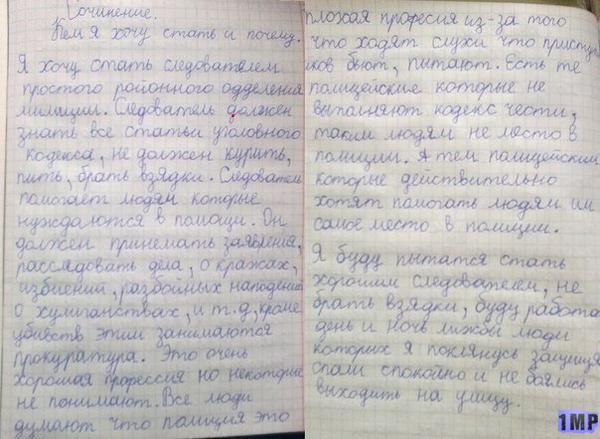 Сочинение.
Кем я хочу стать и почему.
Я хочу стать следователем
простого районного одделения
милиции. Следователь должен
знать все статьи уголовного
кодекса, не должен курить,
пить, брать взядки. Следователь
помогает людям которые
нуждаются в помощи. Он
должен принемать заявления,
расследовать дела, о кражах,
избиений, разбойных нападений
о хулиганствах, и т.д, кроме
убийств этим занимаются
прокуратура. Это очень
хорошая профессия но некоторые
не понимают. Все люди
думают что полиция это
плохая професия из-за того
что ходят слухи что приступ
ков бьют, питают. Есть те
полицейские которые не
выполняют кодекс чести,
таким людям не место в
полиции. А тем полицейским
которые действительно
хотят помогать людям им
самое место в полиции.
Я буду пытатся стать
хорошим следователем, не
брать взядки, буду работа
день и ночь лижбы люди
которых я поклянусь защища
спали спокойно и не боялись
выходить на улицу.
1MP